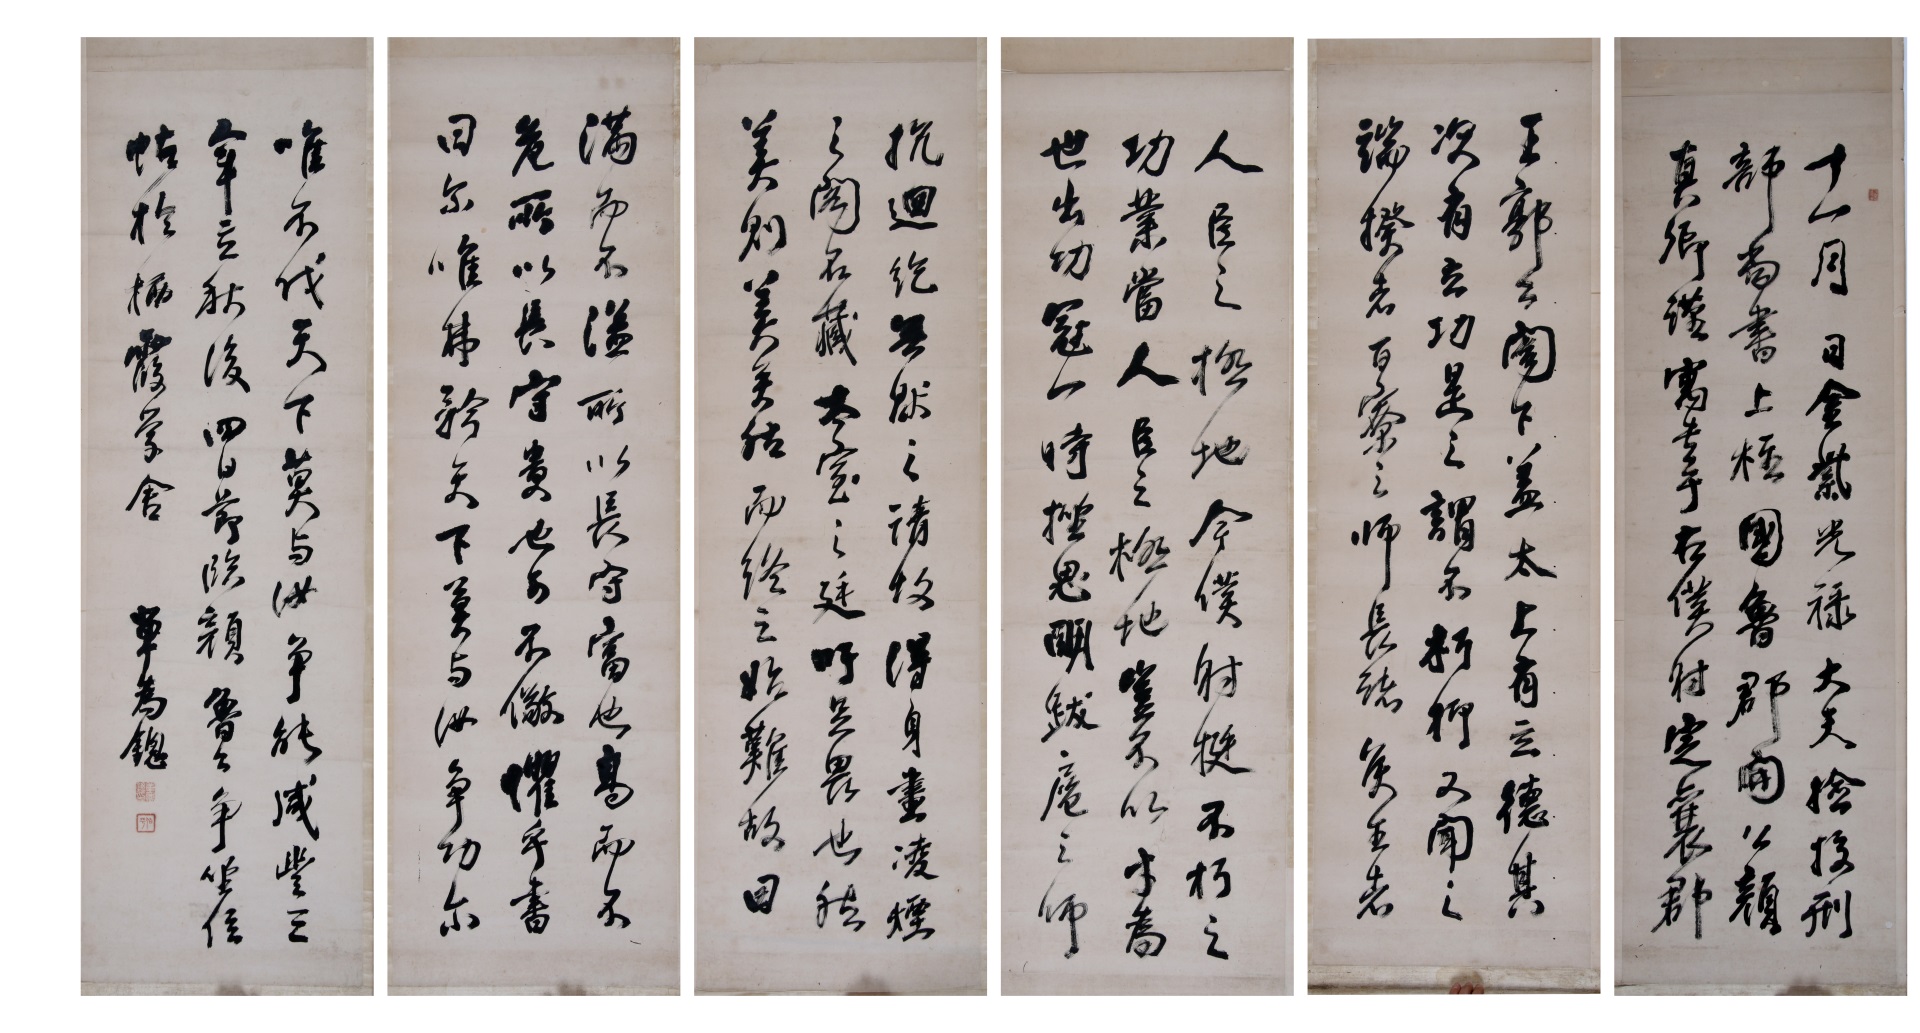 十一月 日金紫光祿大夫檢校刑
部尚書上柱國魯郡開公顏
真卿謹寓書于右僕射定襄郡
王郭公閣下蓋太上有立德其
次有立功是之謂不朽抑又聞之
端揆者百寮之師長諸侯王者
人臣之極地今僕射挺不朽之
功業當人臣之極地豈不以才為
世出功冠一時挫思明跋扈之師
抗迴紇無猒之請故得身畫凌煙
之閣名藏太室之廷吁足畏也然
美則美矣然而終之始難故曰
滿而不溢所以長守富也高而不
危所以長守貴也可不儆懼乎書
曰爾唯弗矜天下莫與汝爭功爾
唯不伐天下莫與汝爭能咸豐三
年立秋後四日節臨顏魯公爭坐位
帖於栖霞學舍 單為鏓